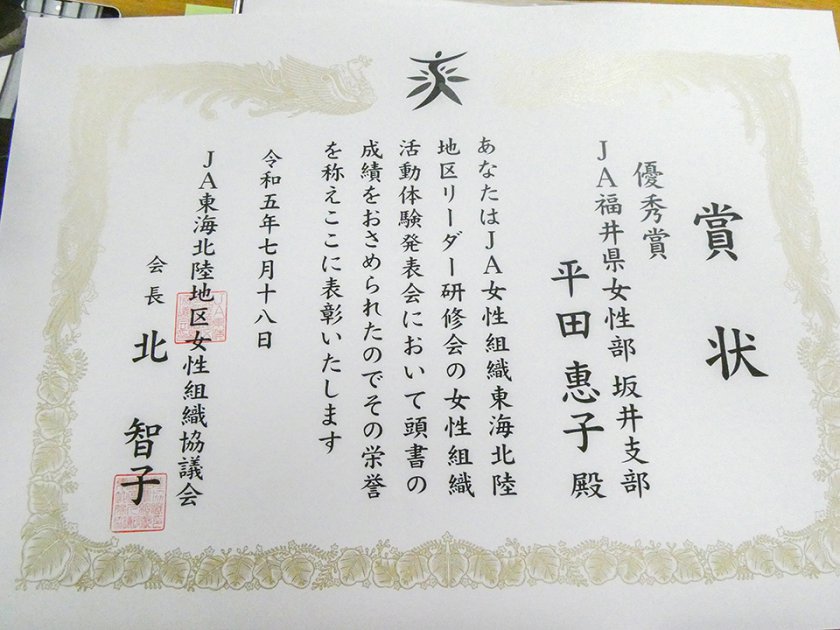 賞状
優秀賞
JA福井県女性部 坂井支部
平田惠子殿
あなたはJA女性組織東海北陸
地区リーダー研修会の女性組織
活動体験発表会において頭書の
成績をおさめられたのでその栄誉
を称えここに表彰いたします
令和五年七月十八日
JA東海北陸地区女性組織協議会
会長 北智子